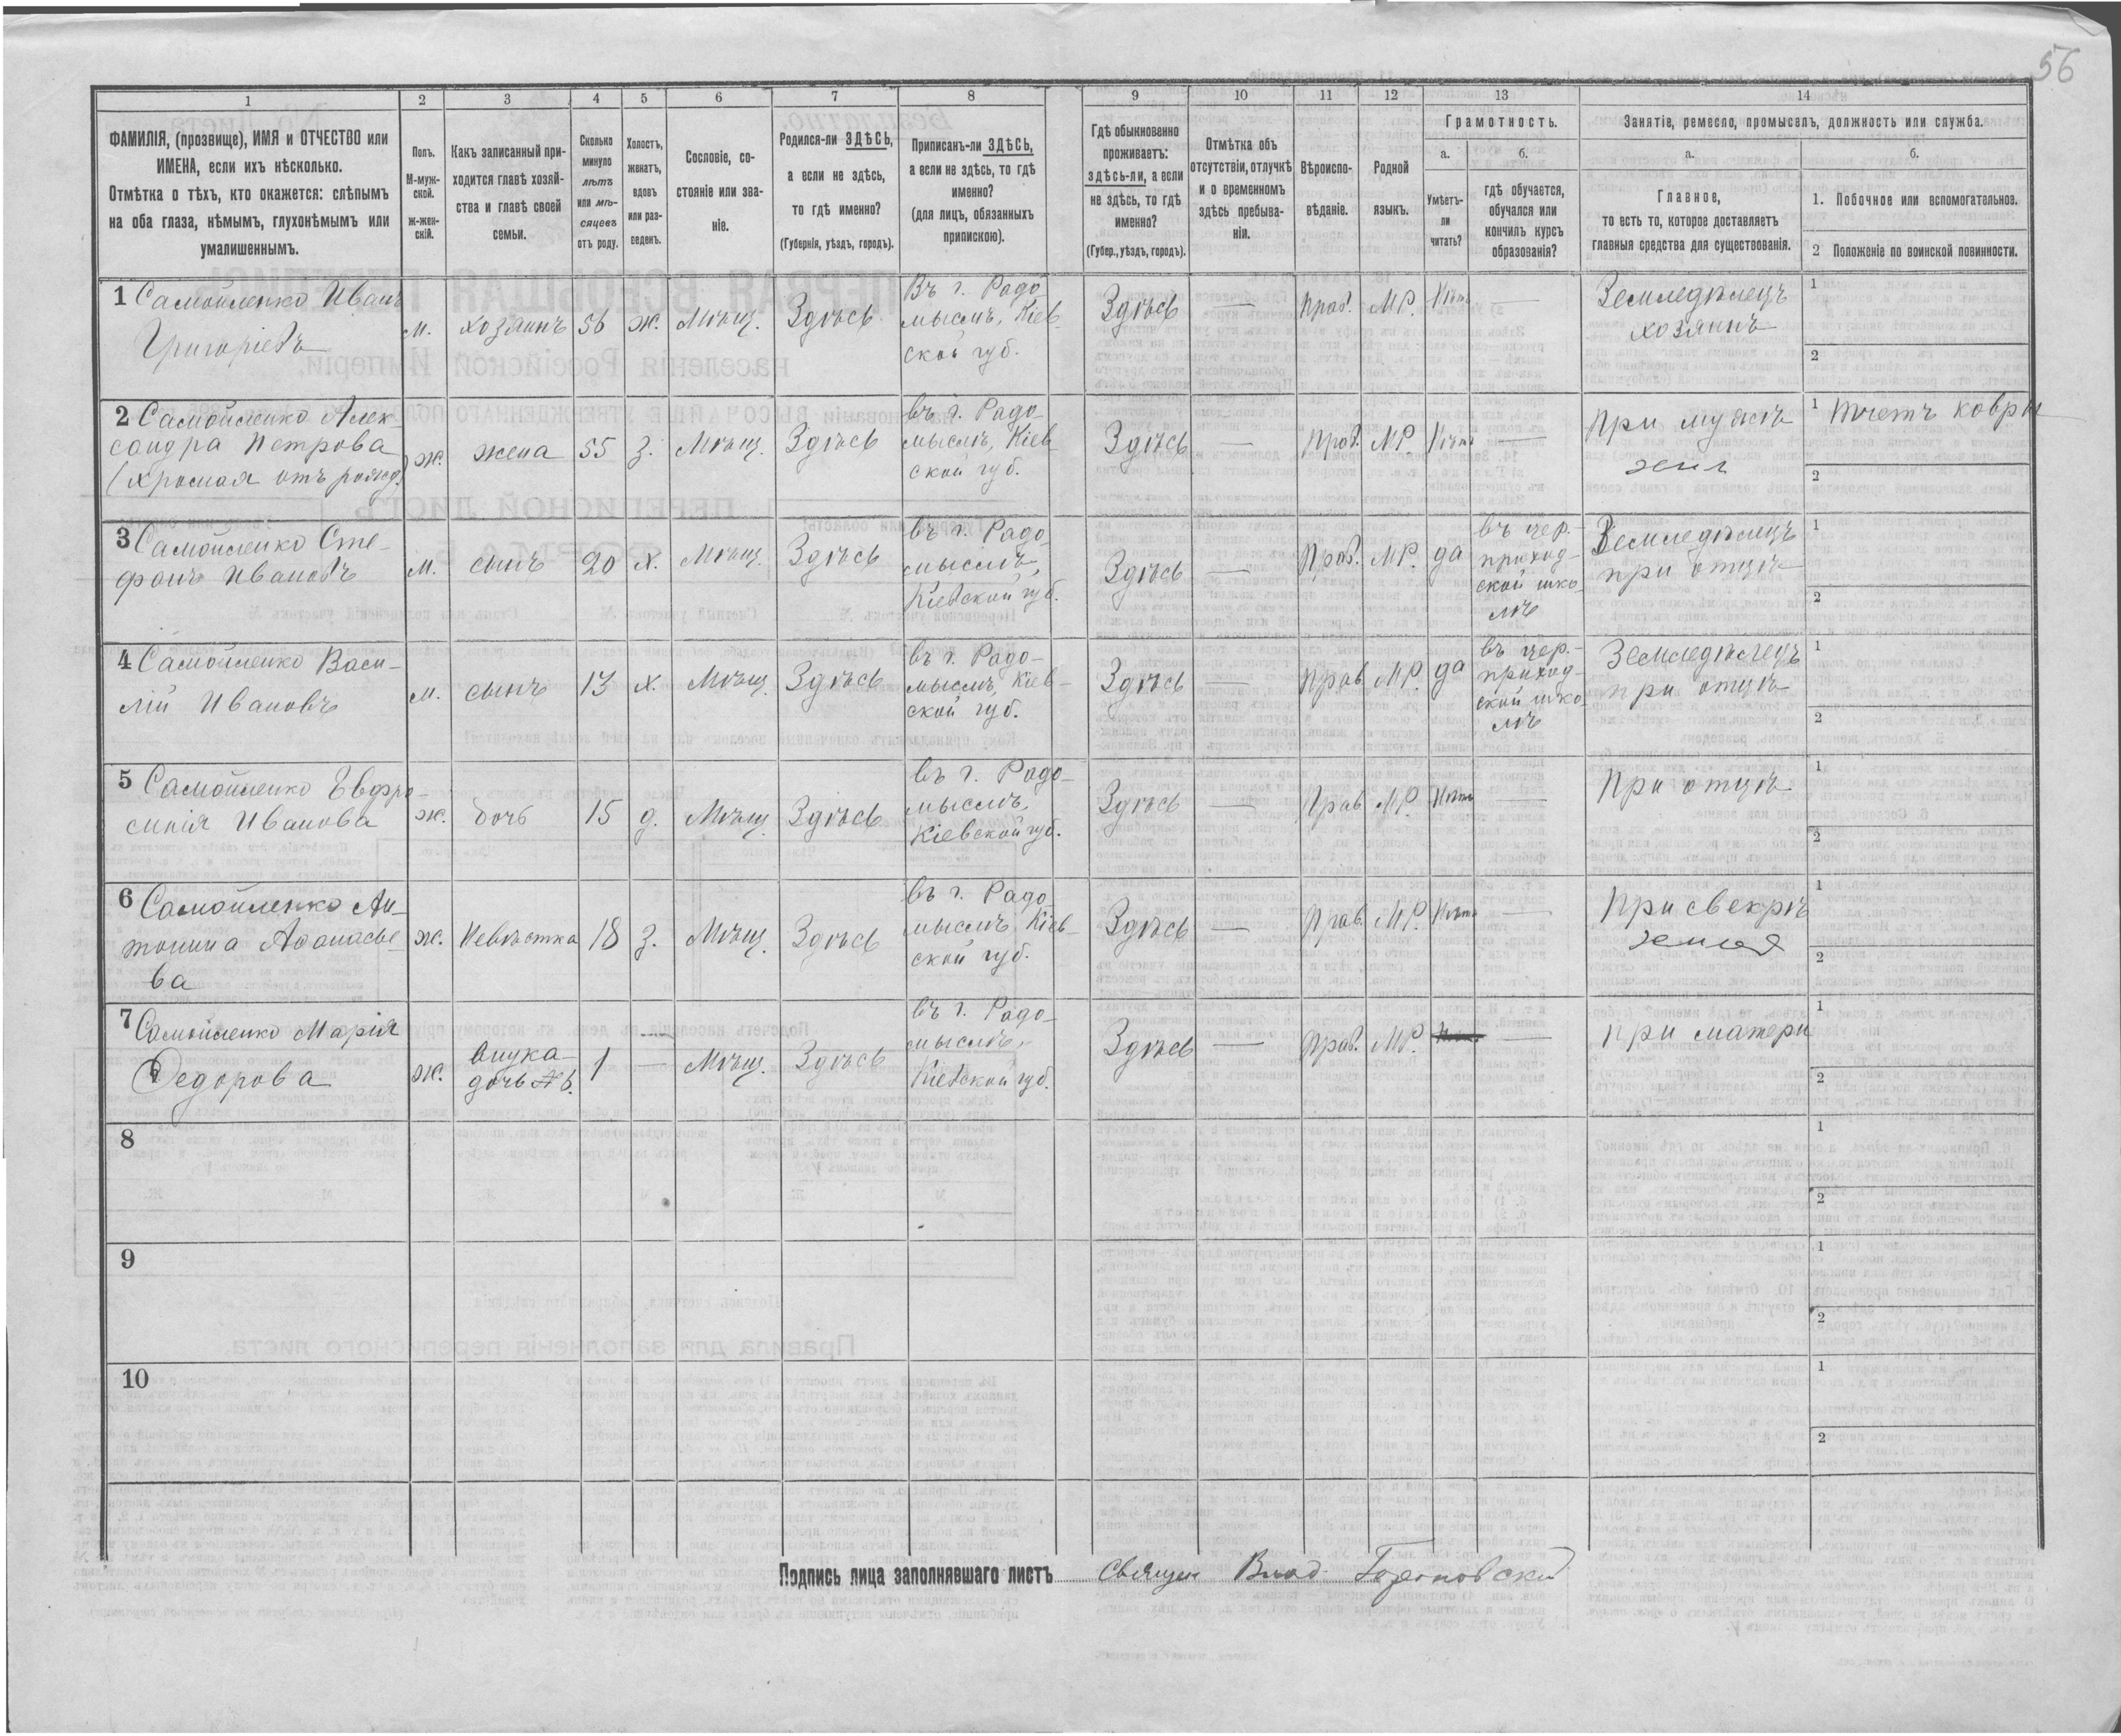 56
1 2 3 4 5 6 7 8 9 10 11 12 13 14
ФАМИЛІЯ, (прозвище), ИМЯ и ОТЧЕСТВО или
ИМЕНА, если ихъ нѣсколько.
Отмѣтка о тѣхъ, кто окажется: слѣпымъ
на оба глаза, нѣмымъ, глухонѣмымъ или
умалишеннымъ.
Полъ.
М-муж-
ской.
ж-жен-
скій.
Какъ записанный при-
ходится главѣ хозяй-
ства и главѣ своей
семьи.
Сколько
минуло
лѣтъ
или мѣ-
сяцевъ
отъ роду.
Холостъ,
женатъ,
вдовъ
или раз-
веденъ.
Сословіе, со-
стояніе или зва-
ніе.
Родился-ли ЗДѢСЬ,
а если не здѣсь,
то гдѣ именно?
(Губернія, уѣздъ, городъ).
Приписанъ-ли ЗДѢСЬ,
а если не здѣсь, то гдѣ
именно?
(для лицъ, обязанныхъ
припискою).
Гдѣ обыкновенно
проживаетъ:
здѣсь-ли, а если
не здѣсь, то гдѣ
именно?
(Губер., уѣздъ, городъ).
Отмѣтка объ
отсутствіи, отлучкѣ
и о временномъ
здѣсь пребыва-
ніи.
Вѣроиспо-
вѣданіе.
Родной
языкъ.
Грамотность.
а.
Умѣетъ-
ли
читать?
б.
гдѣ обучается,
обучался или
кончилъ курсъ
образованія?
Занятіе, ремесло, промыселъ, должность или служба.
а.
Главное,
то есть то, которое доставляетъ
главныя средства для существованія.
б.
1. Побочное или вспомогательное.
2 Положеніе по воинской повинности.
1 Самойленко Иванъ
Григоріевъ
м.
хозяинъ
56
ж.
Мѣщ.
Здѣсь
Въ г. Радо
мыслѣ, Кіев
ской губ.
Здѣсь
—
Прав.
МР.
Нѣтъ
—
Земледѣлецъ
хозяинъ
1
2
2 Самойленко Алек-
сандра Петрова
(хромая отъ рожд.)
ж.
жена
55
з.
Мѣщ.
Здѣсь
въ г. Радо-
мыслѣ, Кіев
ской губ.
Здѣсь
—
Прав.
МР.
Нѣтъ
—
При мужѣ
земл
1 Ткетъ ковры
2
3 Самойленко Сте-
фанъ Ивановъ
м.
сынъ
20
х.
Мѣщ.
Здѣсь
въ г. Радо-
мыслѣ,
Кіевской губ.
Здѣсь
—
Прав.
МР.
да
въ цер.-
приход-
ской шко-
лѣ
Земледѣлецъ
при отцѣ
1
2
4 Самойленко Васи-
лій Ивановъ
м.
сынъ
13
х.
Мѣщ.
Здѣсь
въ г. Радо-
мыслѣ, Кіев-
ской губ.
Здѣсь
—
Прав
МР.
да
въ цер.-
приход-
ской шко-
лѣ
Земледѣлецъ
при отцѣ
1
2
5 Самойленко Евфро-
синія Иванова
ж.
дочь
15
д.
Мѣщ.
Здѣсь
въ г. Радо-
мыслѣ,
Кіевской губ.
Здѣсь
—
Прав
МР.
Нѣтъ
—
При отцѣ
1
2
6 Самойленко Ан-
тонина Аѳанасье-
ва
ж.
Невѣстка
18
з.
Мѣщ.
Здѣсь
въ г. Радо
мыслѣ, Кіев-
ской губ.
Здѣсь
—
Прав.
МР.
Нѣтъ
—
При свекрѣ
земля
1
2
7 Самойленко Марія
Ѳедорова
ж.
внука
дочь №6.
1
—
Мѣщ.
Здѣсь
въ г. Радо-
мыслѣ,
Кіевской губ.
Здѣсь
—
Прав.
МР.
—
при матери
1
2
8
1
2
9
1
2
10
1
2
Подпись лица заполнявшаго листъ Священ Влад.